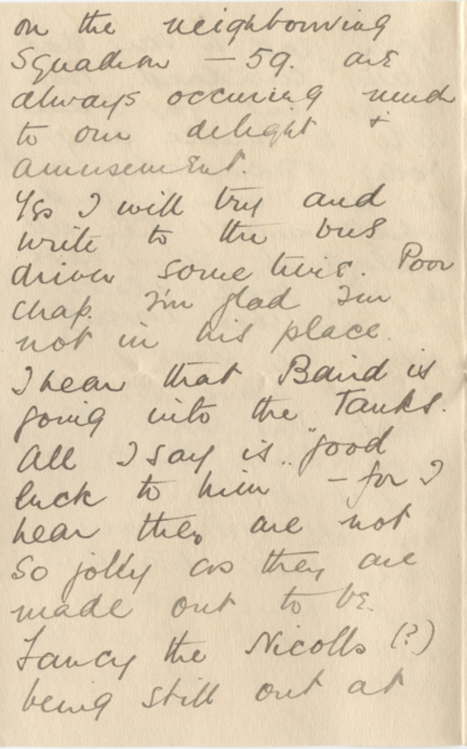 on the neighbouring
Squadron - 59. are
always occuring much
to our delight &
amusement.
Yes I will try and
write to the bus
driver some time. Poor
chap. I'm glad I'm
not in his place.
I hear that Baird is
going into the Tanks.
All I say is "good
luck to him - for I
hear they are not
so jolly as they are
made out to be.
Fancy the Nicolls (?)
being still out at